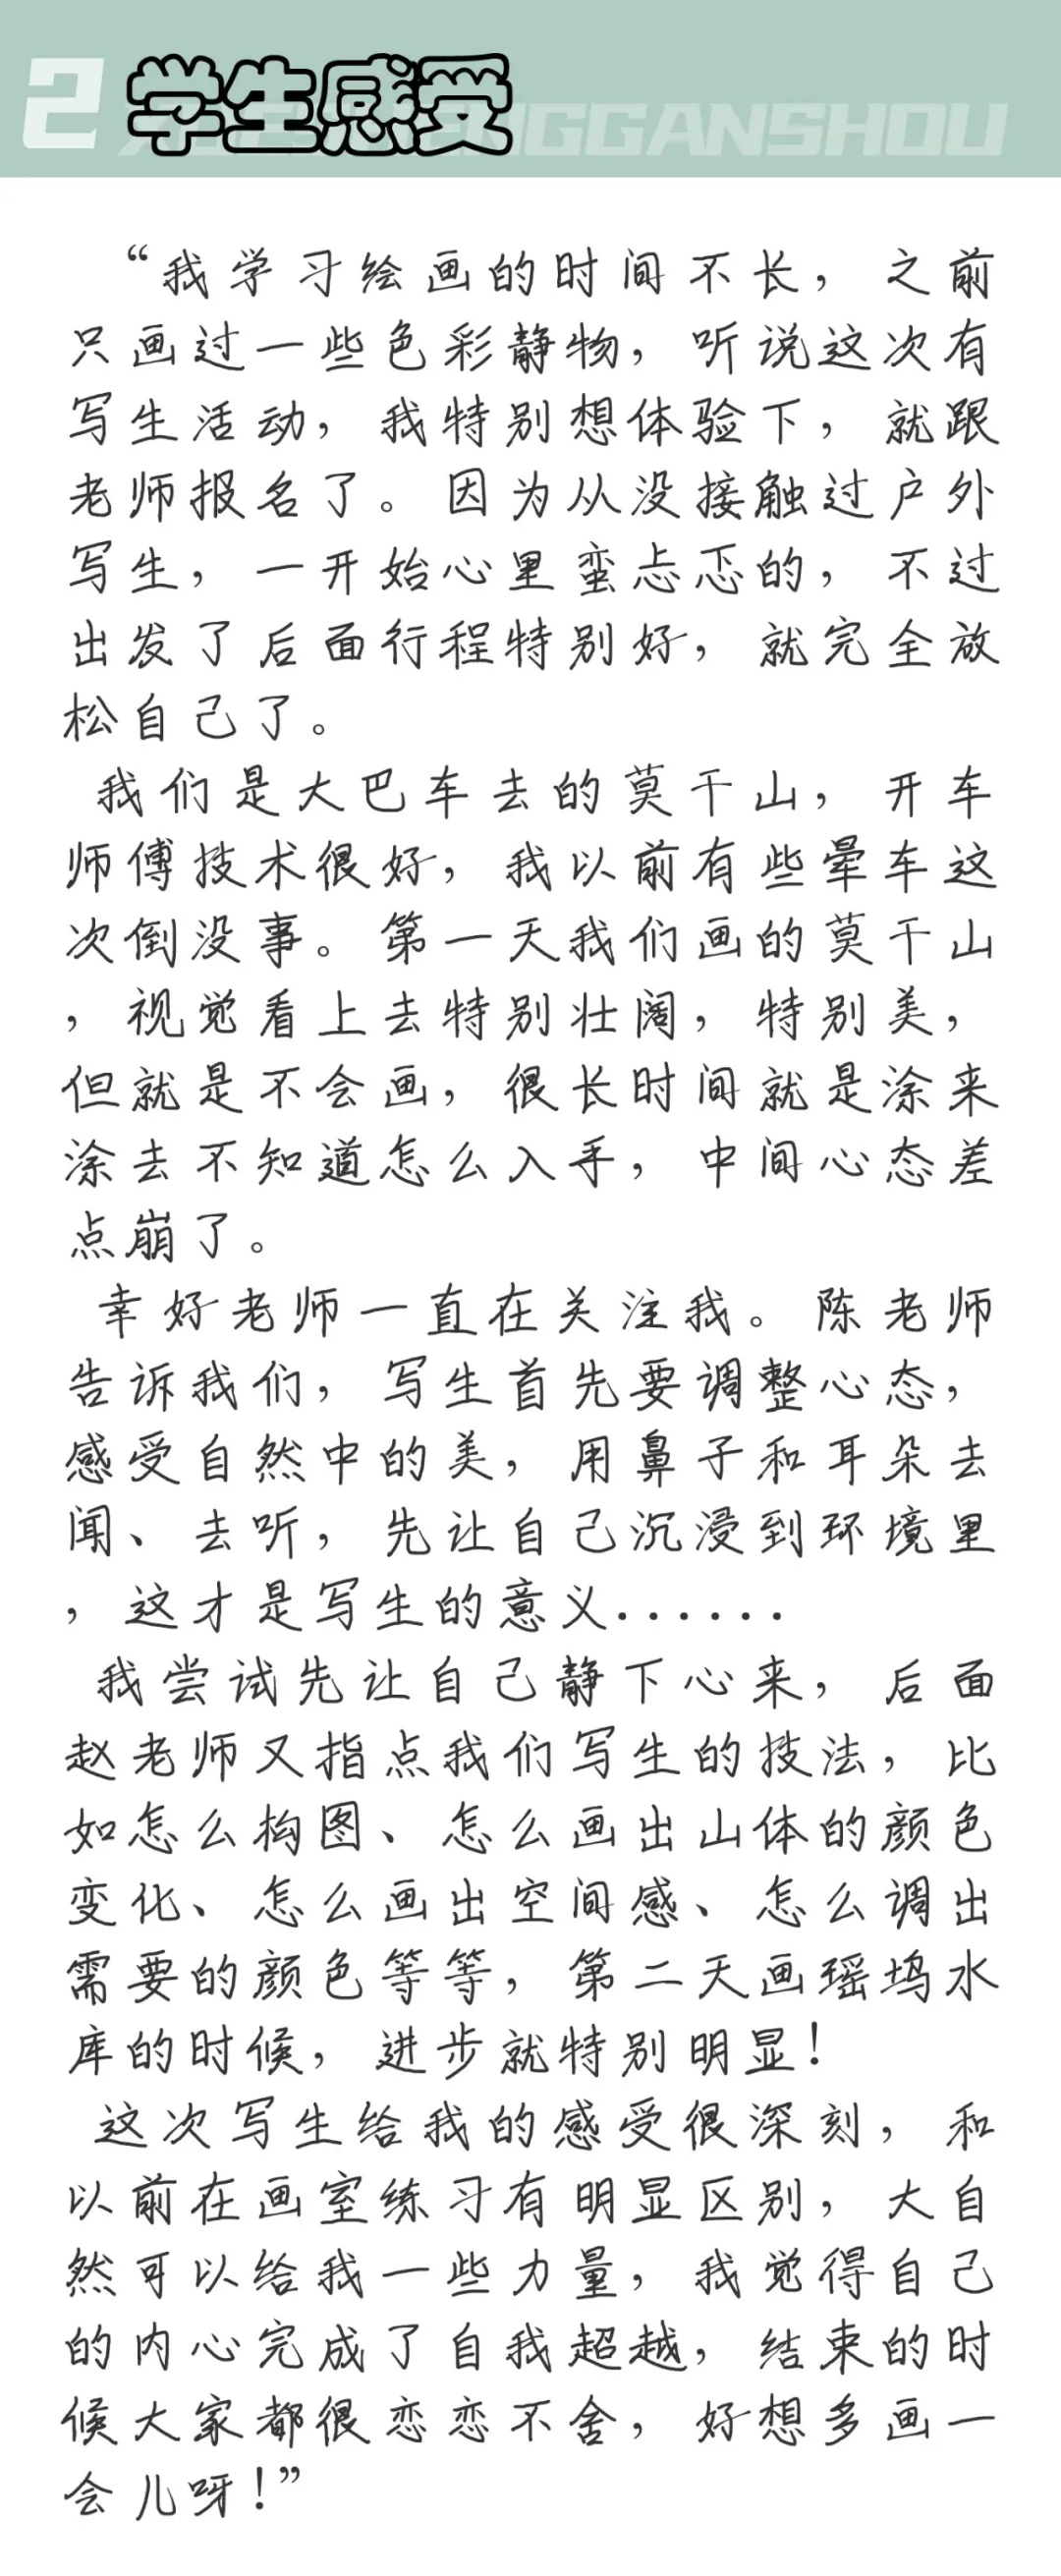 2 学生感受
XUESHENGGANSHOU
“我学习绘画的时间不长，之前
只画过一些色彩静物，听说这次有
写生活动，我特别想体验下，就跟
老师报名了。因为从没接触过户外
写生，一开始心里蛮忐忑的，不过
出发了后面行程特别好，就完全放
松自己了。
我们是大巴车去的莫干山，开车
师傅技术很好，我以前有些晕车这
次倒没事。第一天我们画的莫干山
，视觉看上去特别壮阔，特别美，
但就是不会画，很长时间就是涂来
涂去不知道怎么入手，中间心态差
点崩了。
幸好老师一直在关注我。陈老师
告诉我们，写生首先要调整心态，
感受自然中的美，用鼻子和耳朵去
闻、去听，先让自己沉浸到环境里
，这才是写生的意义......
我尝试先让自己静下心来，后面
赵老师又指点我们写生的技法，比
如怎么构图、怎么画出山体的颜色
变化、怎么画出空间感、怎么调出
需要的颜色等等，第二天画瑶坞水
库的时候，进步就特别明显！
这次写生给我的感受很深刻，和
以前在画室练习有明显区别，大自
然可以给我一些力量，我觉得自己
的内心完成了自我超越，结束的时
候大家都很恋恋不舍，好想多画一
会儿呀！”